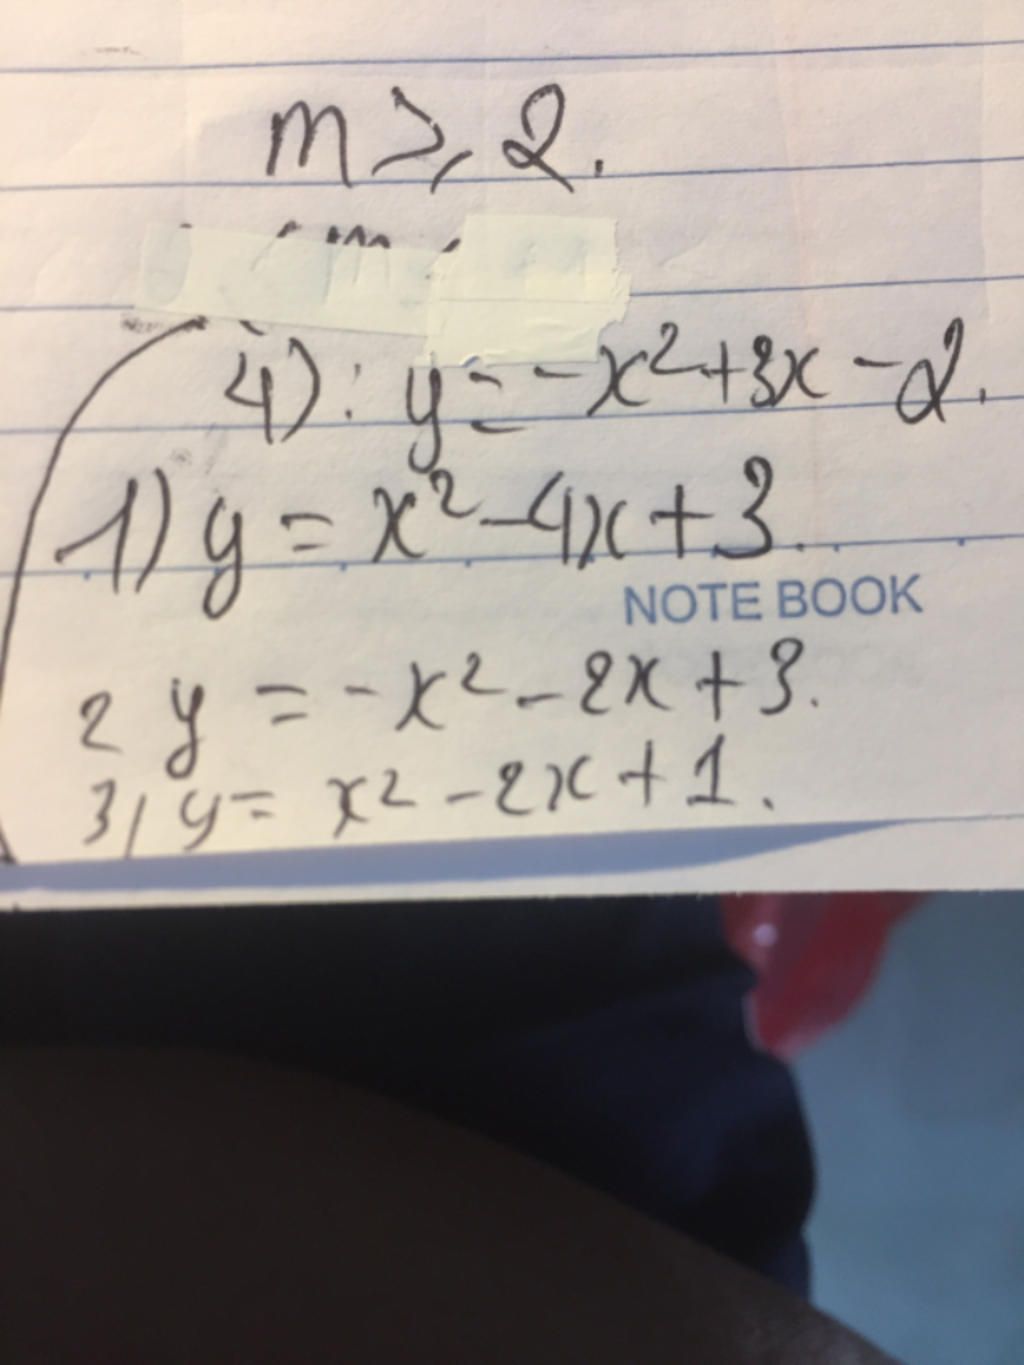 m ⩾ 2.
4): y = -x²+3x -2.
1) y = x²-4x+3.
NOTE BOOK
2 y = -x²-2x+3.
3, y = x²-2x+1.